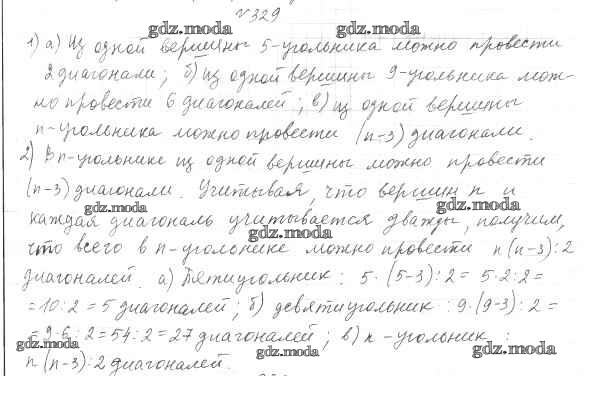 №329
gdz.moda gdz.moda
1) а) Из одной вершины 5-угольника можно провести
2 диагонали; б) из одной вершины 9-угольника мож-
но провести 6 диагоналей; в) из одной вершины
gdz.moda gdz.moda
n-угольника можно провести (n-3) диагонали.
2) В n-угольнике из одной вершины можно провести
(n-3) диагонали. Учитывая, что вершин n и
gdz.moda gdz.moda
каждая диагональ учитывается дважды, получим,
gdz.moda gdz.moda
что всего в n-угольнике можно провести n(n-3):2
диагоналей. а) Пятиугольник: 5·(5-3):2=5·2:2=
=10:2=5 диагоналей; б) девятиугольник: 9·(9-3):2=
=9·6:2=54:2=27 диагоналей; в) n-угольник:
gdz.moda gdz.moda gdz.moda
n(n-3):2 диагоналей.